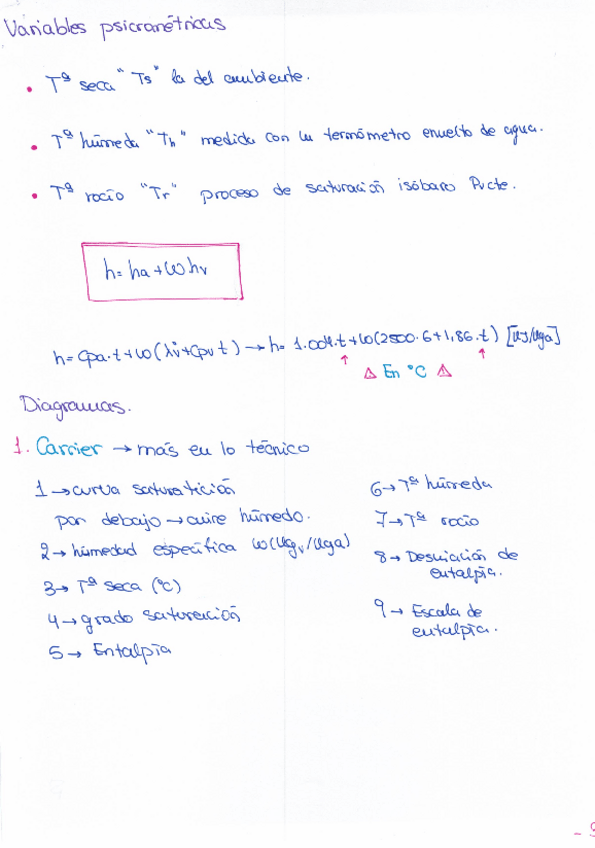 Variables psicrométricas
• Tª seca "Ts" la del ambiente.
• Tª húmeda "Th" medida con un termómetro envuelto de agua.
• Tª rocío "Tr" proceso de saturación isóbaro Pvcte.
h = ha + ω hv
h = Cpa·t + ω (λi + Cpv t) → h = 1.004·t + ω (2500.6 + 1,86·t) [kJ/kga]
↑ ↑
⚠ En °C ⚠
Diagramas.
1. Carrier → más en lo técnico
1 → curva saturatición
por debajo → aire húmedo.
2 → húmedad específica ω (kgv/kga)
3 → Tª seca (°C)
4 → grado saturación
5 → Entalpía
6 → Tª húmeda
7 → Tª rocío
8 → Desviación de
entalpía.
9 → Escala de
entalpía.